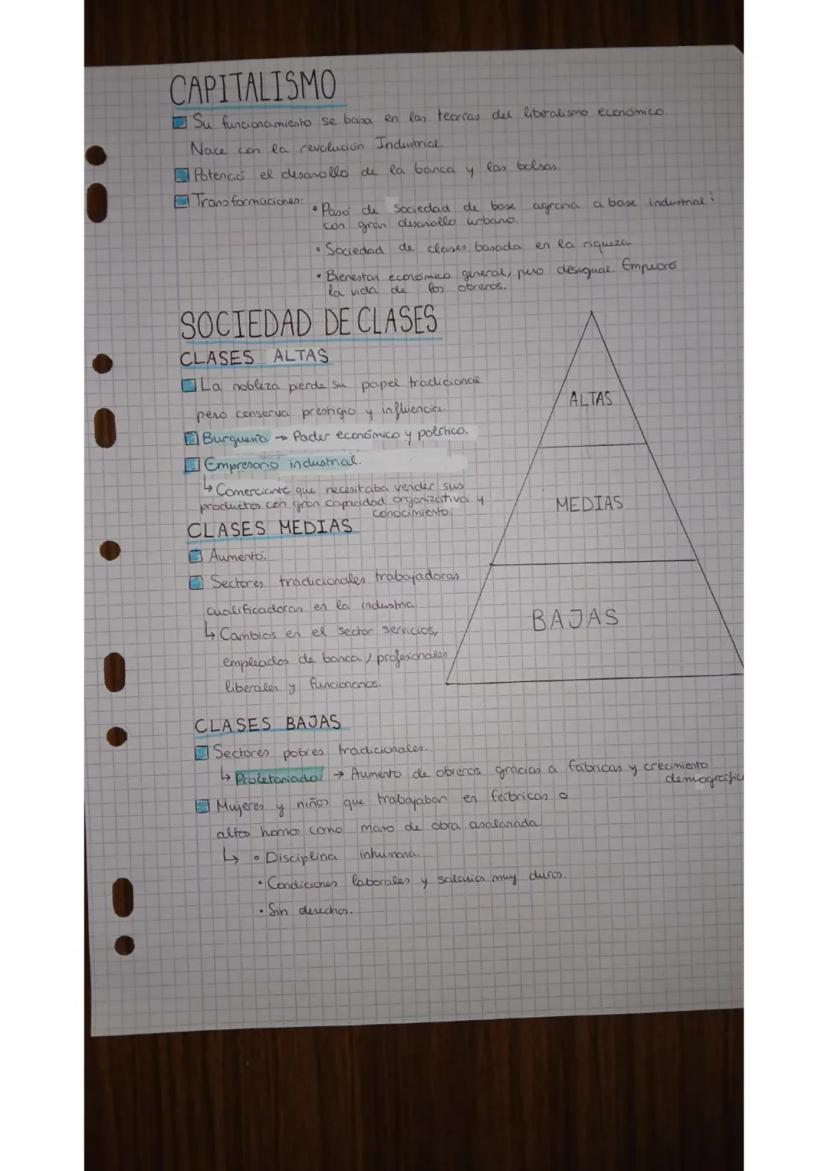 CAPITALISMO
Su funcionamiento se basa en las teorías del liberalismo económico.
Nace con la revolución Industrial.
Potenció el desarollo de la banca y las bolsas.
Transformaciones:
• Pasó de sociedad de base agraria a base industrial:
con gran desarollo urbano.
• Sociedad de clases basada en la riqueza
• Bienestar económico general, pero desigual. Empeoró
la vida de los obreros.
SOCIEDAD DE CLASES
CLASES ALTAS
La nobleza pierde su papel tradicional
pero conserva prestigio y influencia.
Burguesía → Poder económico y político.
Empresario industrial.
↳ Comerciante que necesitaba vender sus
productos con gran capacidad organizativa y
conocimiento.
CLASES MEDIAS
Aumento.
Sectores tradicionales trabajadoras
cualificadoras en la industria
↳ Cambios en el sector servicios,
empleados de banca, profesionales
liberales y funcionarios.
ALTAS
MEDIAS
BAJAS
CLASES BAJAS
Sectores pobres tradicionales.
↳ Proletariado → Aumento de obreros gracias a fábricas y crecimiento
Mujeres y niños que trabajaban en fábricas o
altos hornos como mano de obra asalariada
↳ • Disciplina inhumana.
• Condiciones laborales y salarios muy duros.
• Sin derechos.